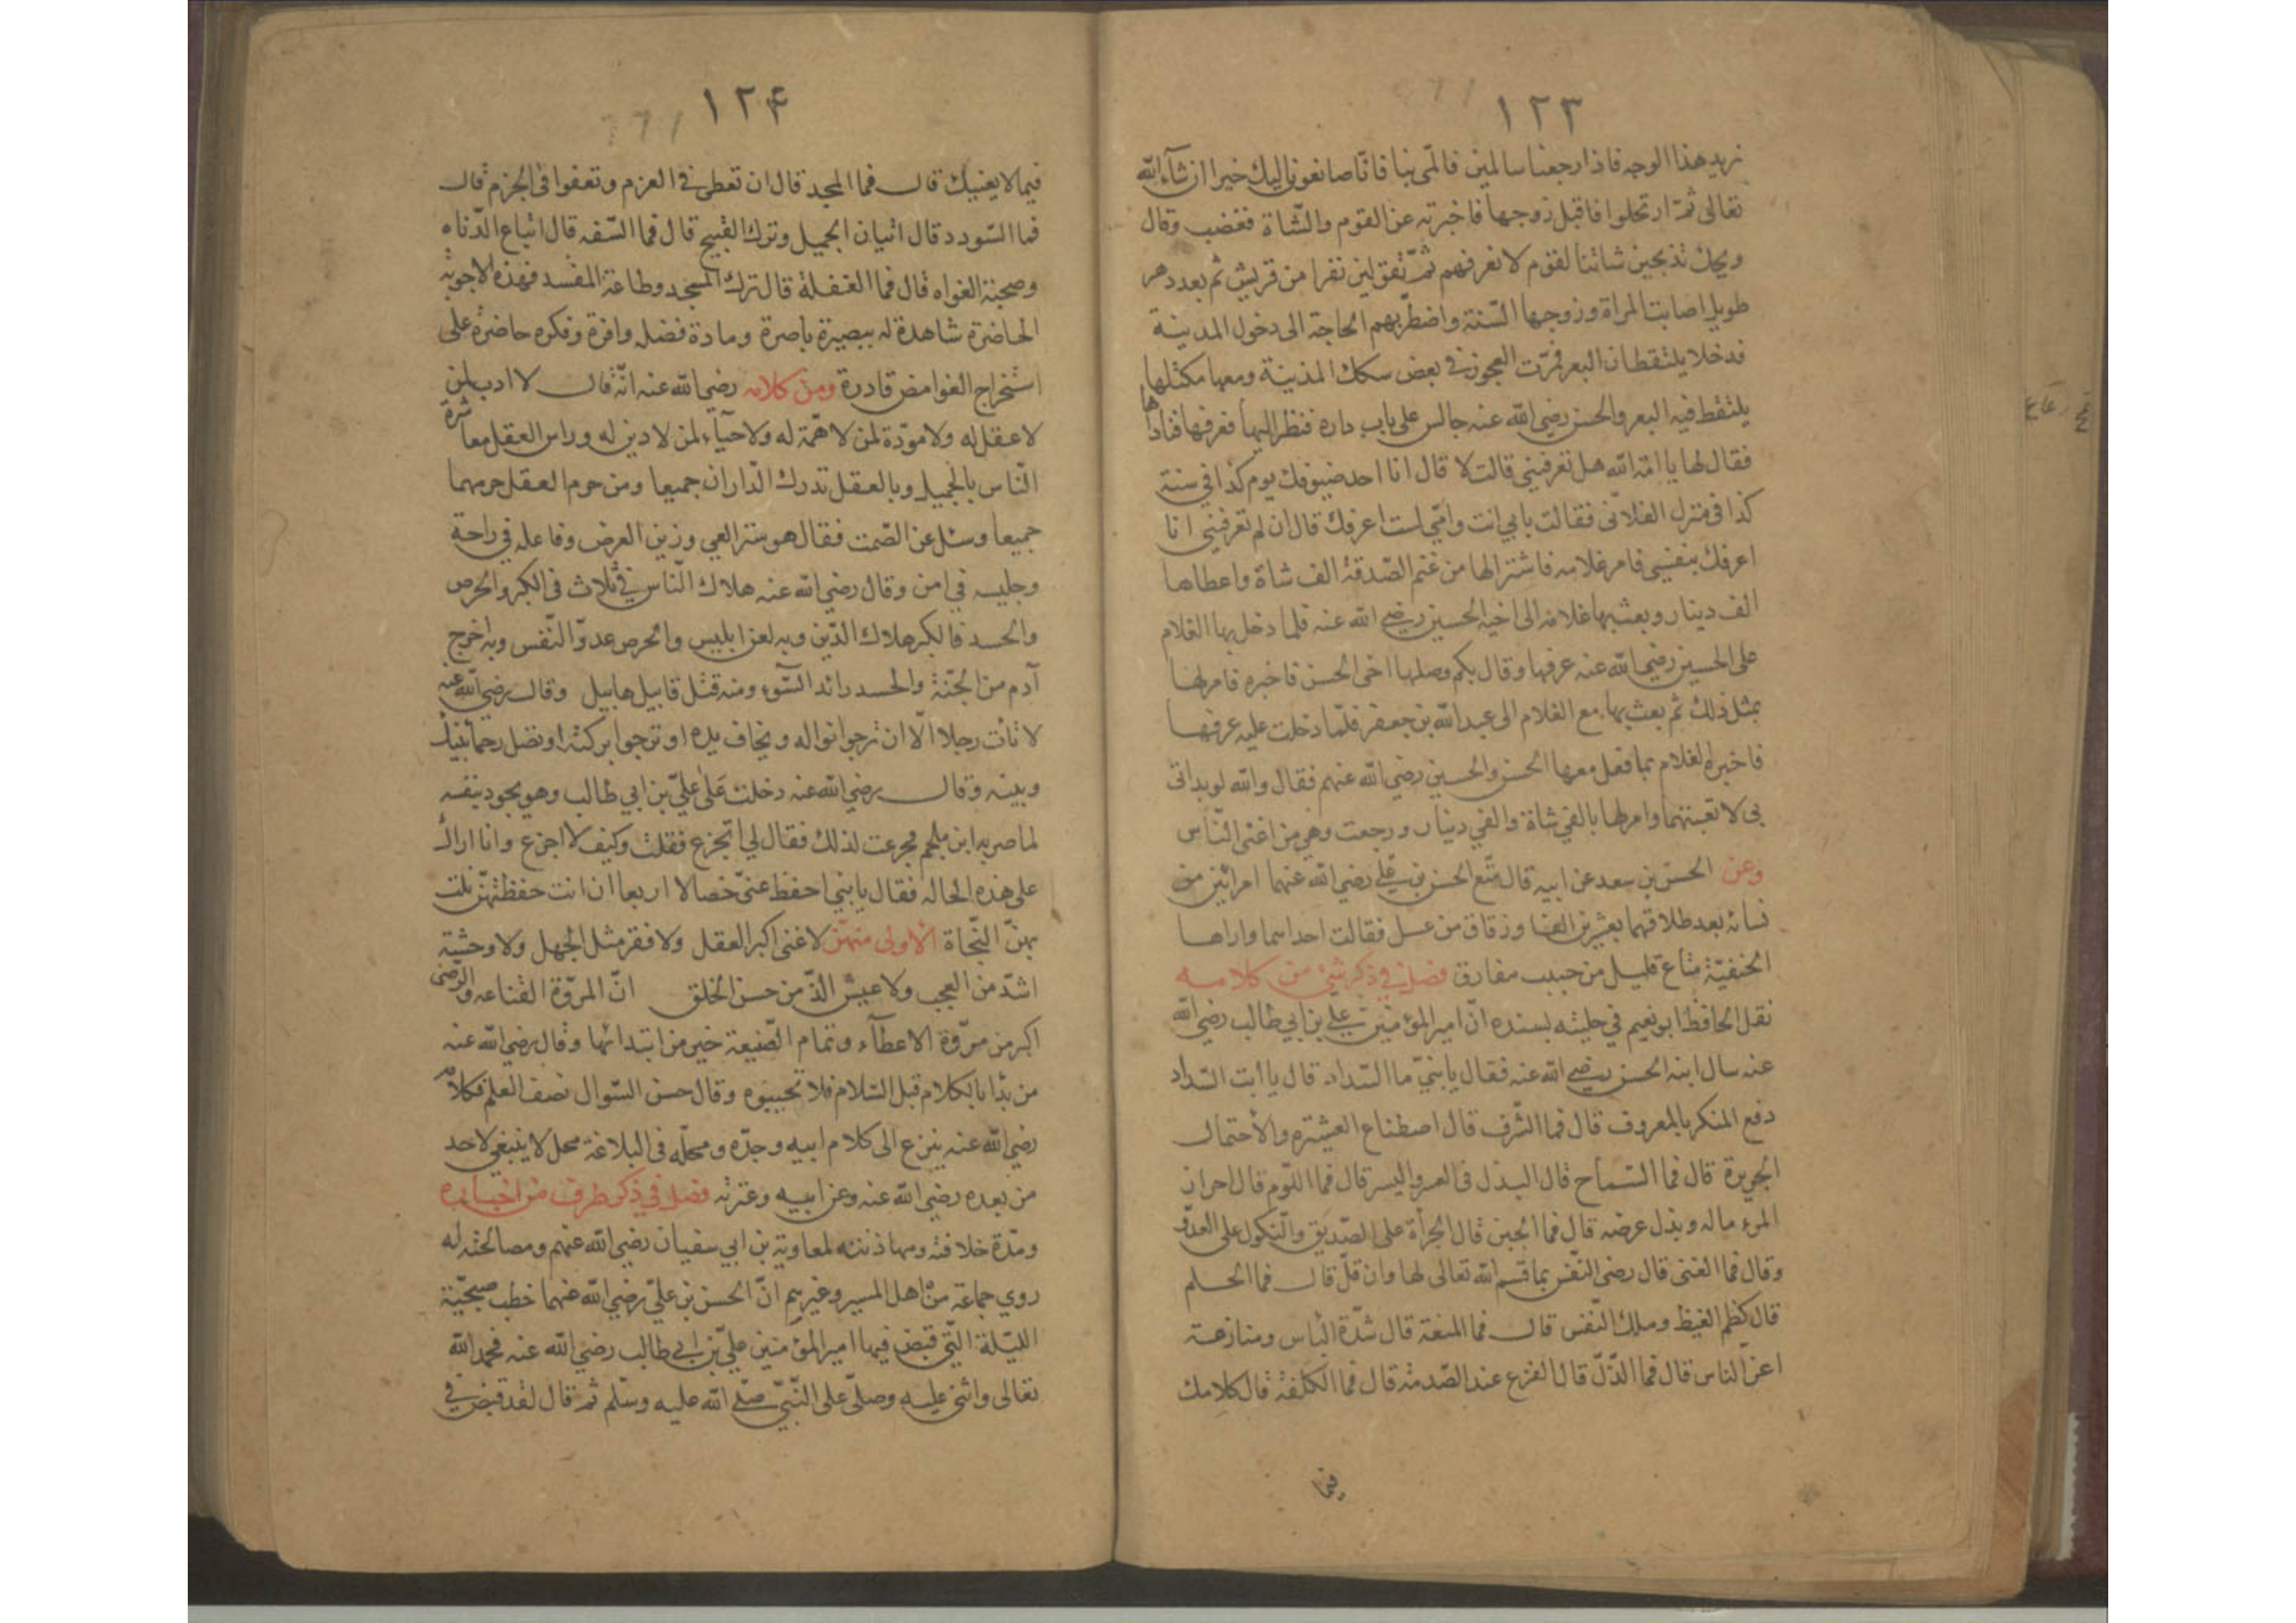 ١٢٣
نريد هذا الوجه فاذا رجعنا سالمين فالمّي بنا فانّا صانعون اليك خيرا ان شآء الله
تعالى ثمّ ارتحلوا فاقبل زوجها فاخبرته عن القوم والشّاة فغضب وقال
ويحك تذبحين شاتنا لقوم لا نعرفهم ثمّ تقولين نفرا من قريش ثم بعد دهر
طويل اصابت المراة وزوجها السّنة واضطرّ بهم الحاجة الى دخول المدينة
فدخلا يلتقطان البعر فمرّت العجوز في بعض سكك المدينة ومعها مكتلها
يلتقط فيه البعر والحسن رضي الله عنه جالس على باب داره فنظر اليها فعرفها فناداها
فقال لها يا امة الله هل تعرفيني قالت لا قال انا احد ضيوفك يوم كذا في سنة
كذا في منزل الفلاني فقالت بابي انت وامّي لست اعرفك قال ان لم تعرفيني انا
اعرفك بنفسي فامر غلامه فاشترا لها من غنم الصّدقة الف شاة واعطاها
الف دينار وبعث بها غلامه الى اخيه الحسين رضي الله عنه فلما دخل بها الغلام
على الحسين رضي الله عنه عرفها وقال بكم وصلها اخى الحسن فاخبره فامر لها
بمثل ذلك ثم بعث بها مع الغلام الى عبد الله بن جعفر فلمّا دخلت عليه عرفها
فاخبره الغلام بما فعل معها الحسن والحسين رضي الله عنهم فقال والله لو بداتى
بى لا تعبتهما وامر لها بالفي شاة والفي دينار ورجعت وهي من اغنى النّاس
وعن الحسن بن سعد عن ابيه قال متّع الحسن بن علي رضي الله عنهما امراتين من
نسائه بعد طلاقهما بعشرين الفا وزقاق من عسل فقالت احداهما واراها
الحنفيّة متاع قليل من حبيب مفارق فصل في ذكر شئ من كلامه
نقل الحافظ ابو نعيم في حليته بسنده انّ امير المؤمنين علي بن ابي طالب رضي الله
عنه سال ابنه الحسن رضي الله عنه فقال يا بنيّ ما السّداد قال يا ابت السّداد
دفع المنكر بالمعروف قال فما الشّرف قال اصطناع العشيره والأحتمال
الجريرة قال فما السّماح قال البذل في العسر واليسر قال فما اللوّم قال احراز
المرء ماله وبذل عرضه قال فما الجبن قال الجرأة على الصّديق والنّكول على العدوّ
وقال فما الغنى قال رضى النّفس بما قسم الله تعالى لها وان قلّ قال فما الحلم
قال كظم الغيظ وملك النّفس قال فما المنعة قال شدّة البأس ومنازعة
اعزّ الناس قال فما الذّلّ قال الفزع عند الصّدمة قال فما الكلفة قال كلامك
فيما
١٢۴
فيما لا يعنيك قال فما المجد قال ان تعطى في العزم وتعفوا في الجزم قال
فما السّودد قال اتيان الجميل وترك القبيح قال فما السّفه قال اتباع الدّناه
وصحبة الغواه قال فما الغفلة قال ترك المسجد وطاعة المفسد فهذه الاجوبة
الحاضرة شاهدة له ببصيرة باصرة ومادة فضل وافرة وفكره حاضرة على
استخراج الغوامض قادرة ومن كلامه رضي الله عنه انّه قال لا ادب لمن
لا عقل له ولا مودّة لمن لا همّة له ولا حيآء لمن لا دين له وراس العقل معاشرة
النّاس بالجميل وبالعقل تدرك الدّاران جميعا ومن حرم العقل حرمهما
جميعا وسئل عن الصّمت فقال هو ستر العي وزين العرض وفاعله في راحة
وجليسه في امن وقال رضي الله عنه هلاك النّاس في ثلاث في الكبر والحرص
والحسد فالكبر هلاك الدّين وبه لعن ابليس والحرص عدوّ النّفس وبه اخرج
آدم من الجنّة والحسد رائد السّوء ومنه قتل قابيل هابيل وقال رضي الله عنه
لا تأت رجلا الّا ان ترجوا نواله ويخاف يده او ترجوا بركته او تصل رحما بينك
وبينه وقال رضي الله عنه دخلت على عليّ بن ابي طالب وهو يجود بنفسه
لما ضربه ابن ملجم فجزعت لذلك فقال لي اتجزع فقلت وكيف لا اجزع وانا اراك
على هذه الحاله فقال يا بني احفظ عنّي خصالا اربعا ان انت حفظتهنّ نلت
بهنّ النّجاة الأولى منهنّ لا غنى اكبر العقل ولا فقر مثل الجهل ولا وحشة
اشدّ من العجب ولا عيش الذّ من حسن الخلق انّ المروّة القناعه والرّضى
اكبر من مروّة الاعطآء وتمام الصّنيعة خير من ابتدائها وقال رضي الله عنه
من بدا بالكلام قبل السّلام فلا تجيبوه وقال حسن السّوال نصف العلم فكلامه
رضي الله عنه ينزع الى كلام ابيه وجدّه ومحلّه في البلاغة محل لا ينبغي لاحد
من بعده رضي الله عنه وعن ابيه وعترته فصل في ذكر طرف من اخباره
ومدّة خلافته ومهاذنته لمعاوية بن ابي سفيان رضي الله عنهم ومصالحته له
روي جماعة من اهل المسير وغيرهم انّ الحسن بن عليّ رضي الله عنهما خطب صبحيّة
الليّلة الّتي قبض فيها امير المؤمنين عليّ بن ابي طالب رضي الله عنه فحمد الله
تعالى واثنى عليه وصلّى على النّبيّ صلّى الله عليه وسلّم ثم قال لقد قبض في